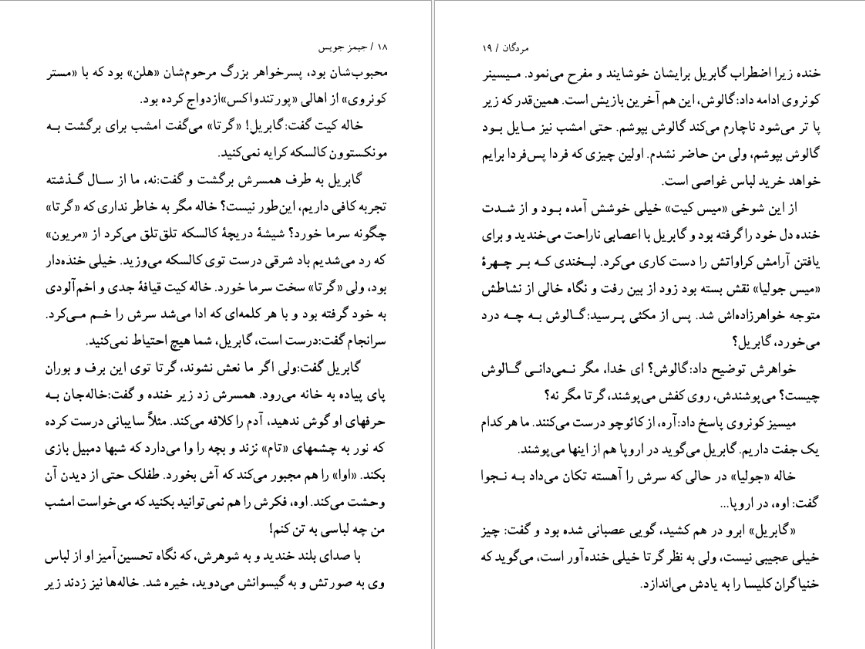 ۱۸ / جیمز جویس
محبوب‌شان بود، پسرخواهر بزرگ مرحوم‌شان «هلن» بود که با «مستر
کونروی» از اهالی «پورتندواکس»ازدواج کرده بود.
خاله کیت گفت:گابریل! «گرتا» می‌گفت امشب برای برگشت به
مونکستوون کالسکه کرایه نمی‌کنید.
گابریل به طرف همسرش برگشت و گفت:نه، ما از سال گذشته
تجربه کافی داریم، این‌طور نیست؟ خاله مگر به خاطر نداری که «گرتا»
چگونه سرما خورد؟ شیشهٔ دریچهٔ کالسکه تلق‌تلق می‌کرد از «مریون»
که رد می‌شدیم باد شرقی درست توی کالسکه می‌وزید. خیلی خنده‌دار
بود، ولی «گرتا» سخت سرما خورد. خاله کیت قیافهٔ جدی و اخم‌آلودی
به خود گرفته بود و با هر کلمه‌ای که ادا می‌شد سرش را خم می‌کرد.
سرانجام گفت:درست است، گابریل، شما هیچ احتیاط نمی‌کنید.
گابریل گفت:ولی اگر ما نعش نشوند، گرتا توی این برف و بوران
پای پیاده به خانه می‌رود. همسرش زد زیر خنده و گفت:خاله‌جان به
حرفهای او گوش ندهید، آدم را کلافه می‌کند. مثلاً سایبانی درست کرده
که نور به چشمهای «تام» نزند و بچه را وا می‌دارد که شبها دمبیل بازی
بکند. «اوا» را هم مجبور می‌کند که آش بخورد. طفلک حتی از دیدن آن
وحشت می‌کند. اوه، فکرش را هم نمی‌توانید بکنید که می‌خواست امشب
من چه لباسی به تن کنم!
با صدای بلند خندید و به شوهرش، که نگاه تحسین‌آمیز او از لباس
وی به صورتش و به گیسوانش می‌دوید، خیره شد. خاله‌ها نیز زدند زیر
مردگان / ۱۹
خنده زیرا اضطراب گابریل برایشان خوشایند و مفرح می‌نمود. میسیتر
کونروی ادامه داد:گالوش، این هم آخرین بازیش است. همین‌قدر که زیر
پا تر می‌شود ناچارم می‌کند گالوش بپوشم. حتی امشب نیز مایل بود
گالوش بپوشم، ولی من حاضر نشدم. اولین چیزی که فردا پس‌فردا برایم
خواهد خرید لباس غواصی است.
از این شوخی «میس کیت» خیلی خوشش آمده بود و از شدت
خنده دل خود را گرفته بود و گابریل با اعصابی ناراحت می‌خندید و برای
یافتن آرامش کراواتش را دست کاری می‌کرد. لبخندی که بر چهرهٔ
«میس جولیا» نقش بسته بود زود از بین رفت و نگاه خالی از نشاطش
متوجه خواهرزاده‌اش شد. پس از مکثی پرسید:گالوش به چه درد
می‌خورد، گابریل؟
خواهرش توضیح داد:گالوش؟ ای خدا، مگر نمی‌دانی گالوش
چیست؟ می‌پوشندش، روی کفش می‌پوشند، گرتا مگر نه؟
میسیز کونروی پاسخ داد:آره، از کائوچو درست می‌کنند. ما هر کدام
یک جفت داریم. گابریل می‌گوید در اروپا هم از اینها می‌پوشند.
خاله «جولیا» در حالی که سرش را آهسته تکان می‌داد به نجوا
گفت: اوه، در اروپا...
«گابریل» ابرو در هم کشید، گویی عصبانی شده بود و گفت: چیز
خیلی عجیبی نیست، ولی به نظر گرتا خیلی خنده‌آور است، می‌گوید که
خنیاگران کلیسا را به یادش می‌اندازد.